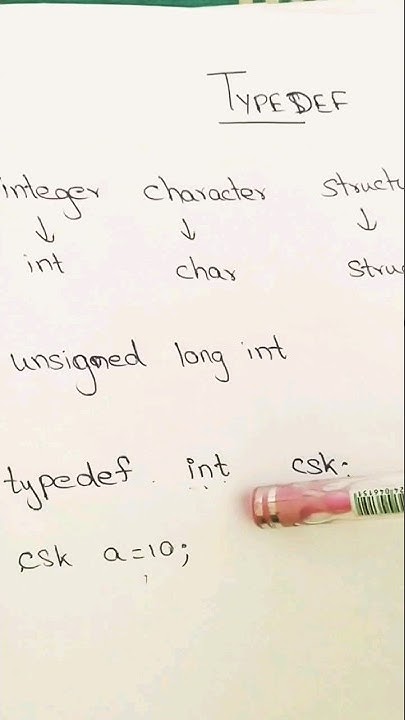 TYPEDEF
integer character structu
↓ ↓ ↓
int char struc
unsigned long int
typedef int csk;
csk a=10;